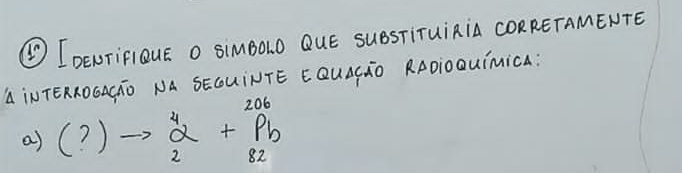 1ª) IDENTIFIQUE O SÍMBOLO QUE SUBSTITUIRIA CORRETAMENTE
A INTERROGAÇÃO NA SEGUINTE EQUAÇÃO RADIOQUÍMICA:
a) (?) → ⁴₂α + ²⁰⁶₈₂Pb